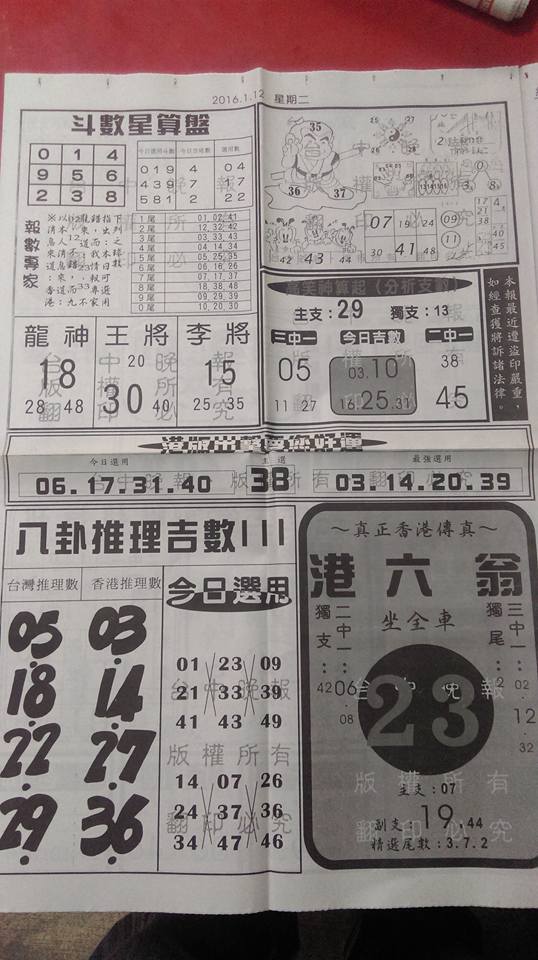 2016.1.12 星期二
斗數星算盤
0 1 4
9 5 6
2 3 8
今日選用斗數 今日吉尾數 選用數
019 4 04
439 7 17
581 2 22
報數專家
1尾 01.02.41
2尾 12.32.42
3尾 03.33.43
4尾 04.14.34
5尾 05.25.35
6尾 06.16.26
7尾 07.17.27
8尾 18.38.48
9尾 09.29.39
0尾 10.20.30
龍神 王將 李將
18
28 48
20
30 40
15
25 35
35
36 37
25 27
26 28
13 14 13 15
3 8
0
42 43 44 45
07 19 24 09
30 41 48 11
17
21
38
49
高笑神算起(分析支數)
主支:29 獨支:13
三中一 今日吉數 二中一
05
11 27
03.10
16.25.31
38
45
本報最近遭盜印嚴重,
如經查獲將訴諸法律。
港版出擊要您好運
今日選用 主選 最強選用
06.17.31.40 38 03.14.20.39
八卦推理吉數III
台灣推理數 香港推理數 今日選用
05 03
18 14
22 27
29 36
01 23 09
21 33 39
41 43 49
14 07 26
24 37 36
34 47 46
~真正香港傳真~
港六翁
坐全車
23
二中一:06.08
獨支:42
三中一:02.12.32
獨尾:2
主支:07
副支:19.44
精選尾數:3.7.2
台中晚報
版權所有
翻印必究